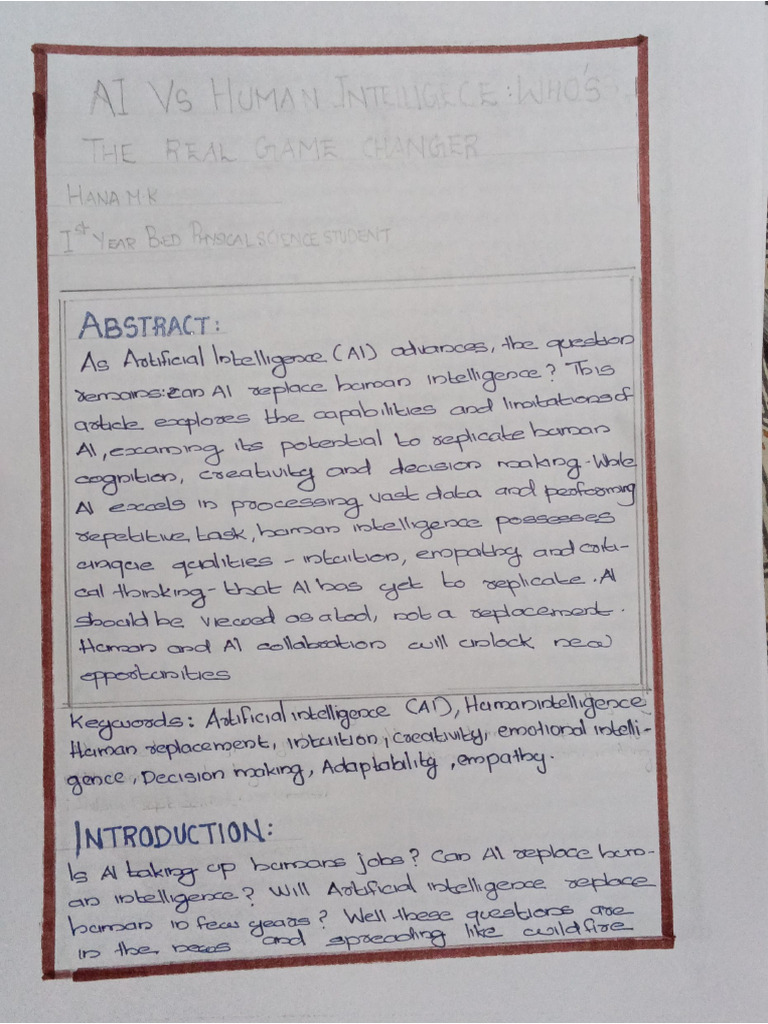 AI VS HUMAN INTELLIGECE: WHO'S
THE REAL GAME CHANGER
HANA M.K
Ist YEAR BED PHYSICAL SCIENCE STUDENT
ABSTRACT:
As Artificial Intelligence (AI) advances, the question
remains: can AI replace human intelligence? This
article explores the capabilities and limitations of
AI, examing its potential to replicate human
cognition, creativity and decision making. While
AI excels in processing vast data and performing
repetitive task, human intelligence possesses
unique qualities - intuition, empathy and criti-
cal thinking - that AI has yet to replicate. AI
should be viewed as a tool, not a replacement.
Human and AI collabration will unlock new
opportunities
Keywords: Artificial intelligence (AI), Human intelligence
Human replacement, intuition, creativity, emotional intelli-
gence, Decision making, Adaptability, empathy.
INTRODUCTION:
Is AI taking up humans jobs? Can AI replace hum-
an intelligence? Will Artificial intelligence replace
human in few years? Well these questions are
in the news and spreading like wildfire